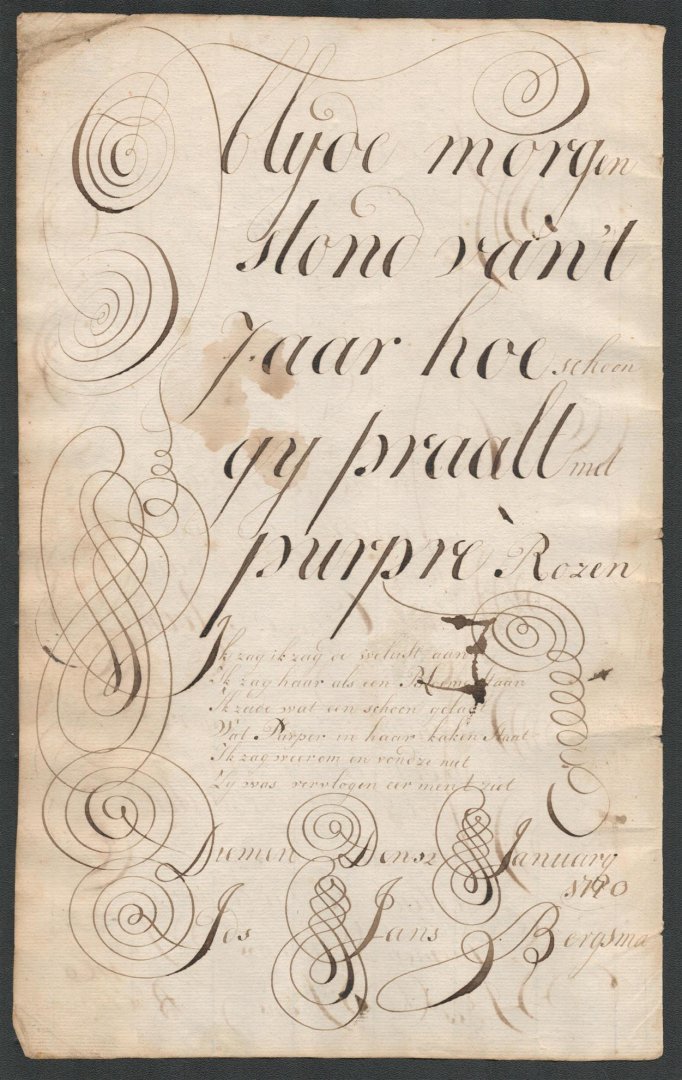 blyde morgen
stond van't
Jaar hoe schoon
gy praalt met
purpre Rozen
Ik zag ik zag de welust aan
Ik zag haar als een Bloeme staan
Ik zade wat een schoon gelaat
Wat Purper in haar kaken staat
Ik zag weerom en vondze niet
Zy was vervlogen eer men t ziet
Diemen Den 2 January
1790
Jes Jans Bergsma